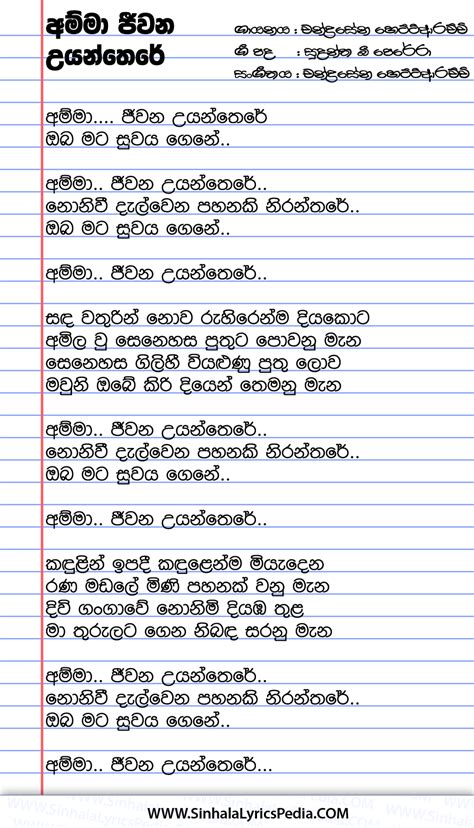 අම්මා ජීවන
උයන්තෙරේ
ගායනය : චන්ද්‍රසේන හෙට්ටිආරච්චි
ගී පද : සුදත්ත සී පෙරේරා
සංගීතය : චන්ද්‍රසේන හෙට්ටිආරච්චි
අම්මා.... ජීවන උයන්තෙරේ
ඔබ මට සුවය ගෙනේ..
අම්මා.. ජීවන උයන්තෙරේ..
නොනිවී දැල්වෙන පහනකි නිරන්තරේ..
ඔබ මට සුවය ගෙනේ..
අම්මා.. ජීවන උයන්තෙරේ..
සඳ වතුරින් නොව රුහිරෙන්ම දියකොට
අමිල වූ සෙනෙහස පුතුට පොවනු මැන
සෙනෙහස ගිලිහී වියළුණු පුතු ලොව
මවුනි ඔබේ කිරි දියෙන් තෙමනු මැන
අම්මා.. ජීවන උයන්තෙරේ..
නොනිවී දැල්වෙන පහනකි නිරන්තරේ..
ඔබ මට සුවය ගෙනේ..
අම්මා.. ජීවන උයන්තෙරේ..
කඳුළින් ඉපදී කඳුළෙන්ම මියැදෙන
රණ මඩලේ මිණි පහනක් වනු මැන
දිවි ගංගාවේ නොනිමි දියඹ තුළ
මා තුරුලට ගෙන නිබඳ සරනු මැන
අම්මා.. ජීවන උයන්තෙරේ..
නොනිවී දැල්වෙන පහනකි නිරන්තරේ..
ඔබ මට සුවය ගෙනේ..
අම්මා.. ජීවන උයන්තෙරේ...
WWW.SinhalaLyricsPedia.COM